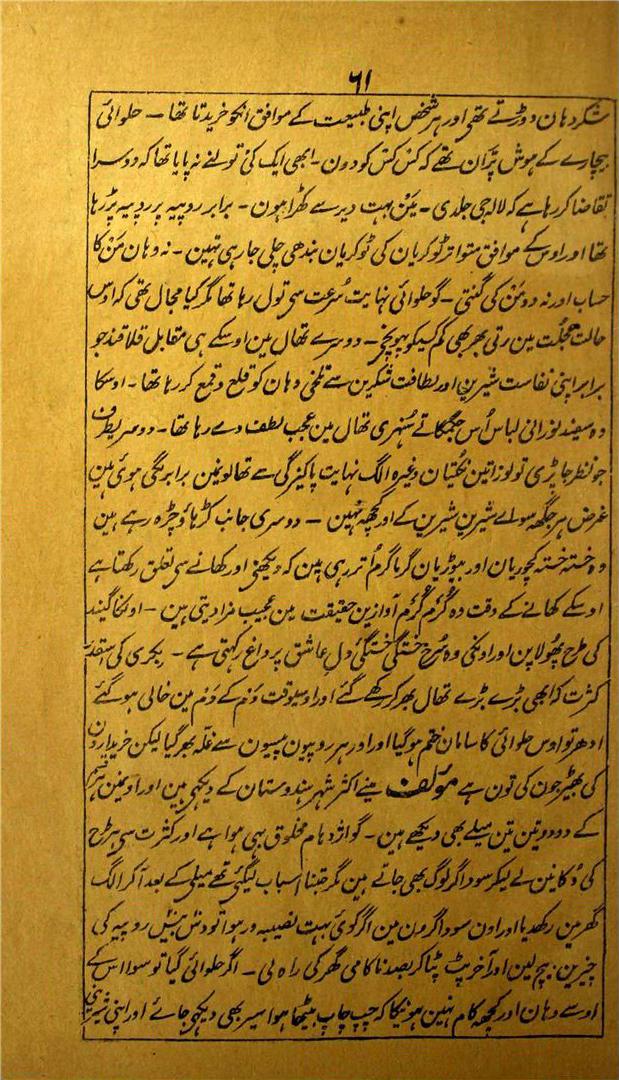 ۶۱
شکر دہان دوڑتے تھی اور ہر شخص اپنی طبیعت کے موافق انکو خریدتا تھا ۔ حلوائی
بیچارے کے ہوش پرّان تھے کہ کس کس کو دون ۔ ابھی ایک کی تولنے نہ پایا تھا کہ دوسرا
تقاضا کر رہا ہے کہ لالہ جی جلدی ۔ مین بہت دیر سے کھڑا ہون ۔ برابر روپیہ پر روپیہ پڑ رہا
تھا اور اوس کے موافق متواتر ٹوکریان کی ٹوکریان بندھی چلی جا رہی تہین ۔ نہ وہان من کا
حساب اور نہ دو من کی گنتی ۔ گو حلوائی نہایت سُرعت سی تول رہا تھا مگر کیا مجال تھی کہ اوس
حالت عجلت مین رتی بھر بھی کم کسیکو پہونچے ۔ دوسرے تھال مین اوسکے ہی مقابل قلاقند جو
برابر اپنی نفاست شیرین اور لطافت شکرین سے تلخی دہان کو قلع و قمع کر رہا تھا ۔ اوسکا
وہ سفید نورانی لباس اُس جگمگاتے سُنہری تھال مین عجب لطف دے رہا تھا ۔ دوسریطرف
جو نظر جا پڑی تو لوزاتین نکتیان وغیرہ الگ نہایت پاکیزگی سے تھالونین برابر لگی ہوئی ہین
غرض ہر جگھہ سواے شیرین شیرین کے اور کچھہ نہین ۔ دوسری جانب کڑہاؤ چڑہ رہے ہین
وہ خستہ خستہ کچوریان اور بیوڑیان گرما گرم اُتر رہی ہین کہ دیکھنی اور کھانے سی تعلق رکھتا ہے
اوسکے کھانے کے وقت وہ کُڑم کُڑم آوازین حقیقت مین عجیب مزا دیتی ہین ۔ اونکا گیند
کی طرح پھولا پن اور اونکی وہ سُرخ خستگی خستگیٔ دلِ عاشق پر داغ رکہتی ہے ۔ بکری کی اسقدر
کثرت کہ ابھی بڑے بڑے تھال بھر کر رکھے گئے اور اوسیوقت دم کے دم مین خالی ہو گئے
ادھر تو اوس حلوائی کا سامان ختم ہو گیا اور اودہر روپیون پیسون سے غلّہ بھر گیا لیکن خریدارون
کی بھیڑ جون کی تون ہے مؤلف مینے اکثر شہر ہندوستان کے دیکھی ہین اور اونمین ہر قسم
کے دو دو تین تین میلے بھی دیکھے ہین ۔ گو اژدہام مخلوق بہی ہوا ہے اور کثرت سی ہر طرح
کی دُکانین لے لیکر سوداگر لوگ بھی جاتے ہین مگر جتنا اسباب لیگئی تھے میلی کے بعد آکر الگ
گھر مین رکھدیا اور اون سوداگرون مین اگر کوئی بہت نصیبہ ور ہوا تو دس بیس روپیہ کی
چیزین بیچ لین اور آخر پٹ پٹا کر بصد ناکامی گھر کی راہ لی ۔ اگر حلوائی گیا تو سوا اس کے
اوسے وہان اور کچھہ کام نہین ہونیکا کہ چپ چاپ بیٹھا ہوا سیر بھی دیکھی جائے اور اپنی شیرینی